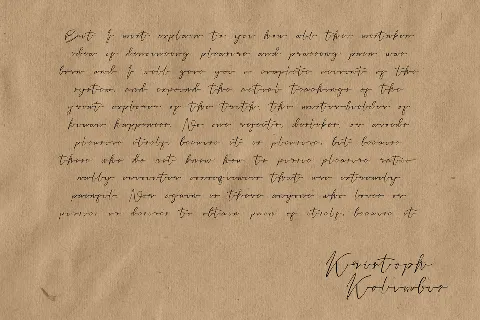 But I must explain to you how all this mistaken
idea of denouncing pleasure and praising pain was
born and I will give you a complete account of the
system, and expound the actual teachings of the
great explorer of the truth, the master-builder of
human happiness. No one rejects, dislikes or avoids
pleasure itself, because it is pleasure, but because
those who do not know how to pursue pleasure ratio-
nally encounter consequences that are extremely
painful. Nor again is there anyone who loves or
pursues or desires to obtain pain of itself, because it
Kristoph
Kolumbus